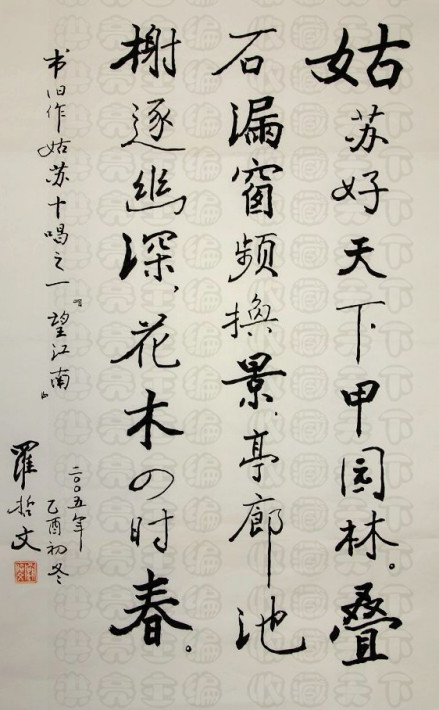 姑苏好天下甲园林。叠
石漏窗频換景，亭廊池
榭逐幽深，花木四时春。
书旧作姑苏十唱之一『望江南』
二〇〇五年
乙酉初冬
羅哲文